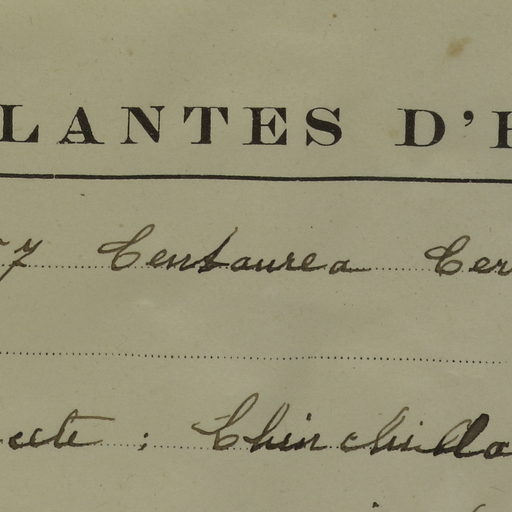 LANTES D'E
57 Centaurea Cer
ecte : Chinchilla